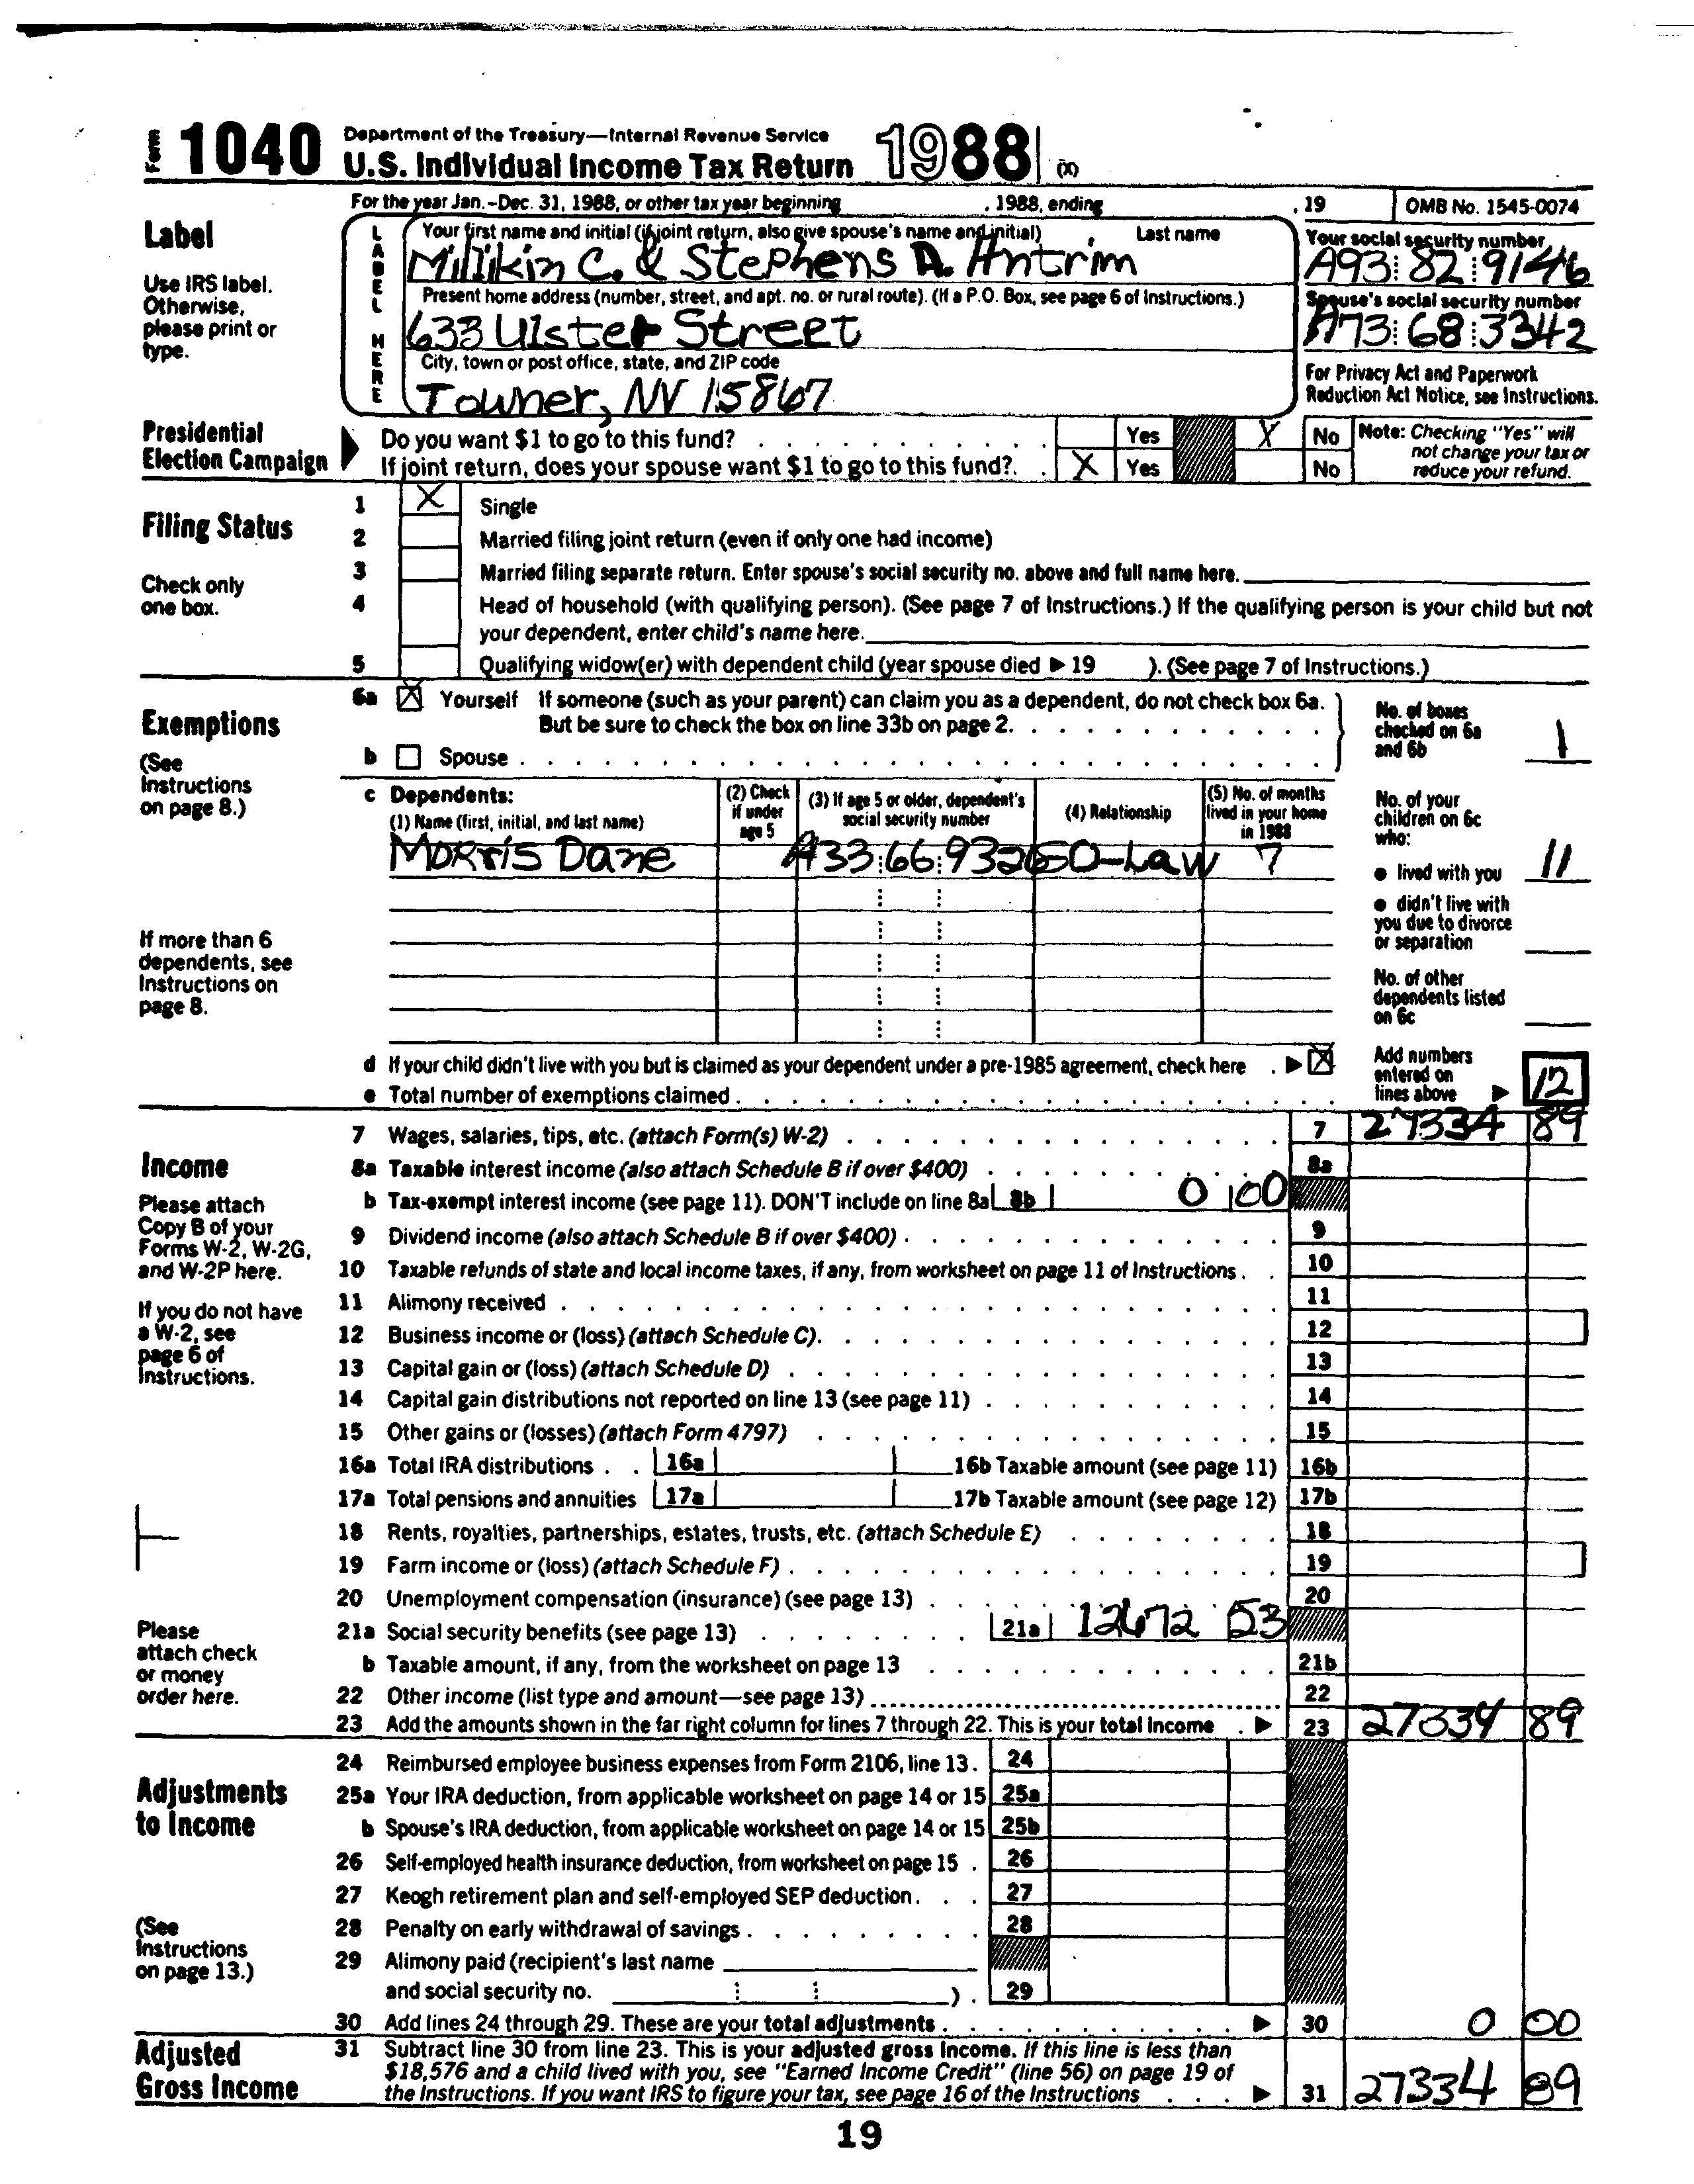 Form 1040 Department of the Treasury—Internal Revenue Service
U.S. Individual Income Tax Return 1988 (X)
For the year Jan.–Dec. 31, 1988, or other tax year beginning , 1988, ending , 19 OMB No. 1545-0074
Label
Use IRS label. Otherwise, please print or type.
LABEL HERE
Your first name and initial (if joint return, also give spouse's name and initial) Last name
Millikin C. & Stephens A. Antrim
Your social security number
A93 82 9146
Present home address (number, street, and apt. no. or rural route). (If a P.O. Box, see page 6 of Instructions.)
633 Ulster Street
Spouse's social security number
A73 68 3342
City, town or post office, state, and ZIP code
Towner, NV 15867
For Privacy Act and Paperwork Reduction Act Notice, see Instructions.
Presidential Election Campaign
Do you want $1 to go to this fund? Yes X No
If joint return, does your spouse want $1 to go to this fund? X Yes No
Note: Checking "Yes" will not change your tax or reduce your refund.
Filing Status
Check only one box.
1 X Single
2 Married filing joint return (even if only one had income)
3 Married filing separate return. Enter spouse's social security no. above and full name here.
4 Head of household (with qualifying person). (See page 7 of Instructions.) If the qualifying person is your child but not
your dependent, enter child's name here.
5 Qualifying widow(er) with dependent child (year spouse died ▶ 19 ). (See page 7 of Instructions.)
Exemptions
(See Instructions on page 8.)
6a X Yourself If someone (such as your parent) can claim you as a dependent, do not check box 6a.
But be sure to check the box on line 33b on page 2.
b Spouse
No. of boxes checked on 6a and 6b 1
c Dependents:
(1) Name (first, initial, and last name)
(2) Check if under age 5
(3) If age 5 or older, dependent's social security number
(4) Relationship
(5) No. of months lived in your home in 1988
Morris Dane A33 66 932 SO-Law 7
No. of your children on 6c who:
● lived with you 11
● didn't live with you due to divorce or separation
No. of other dependents listed on 6c
If more than 6 dependents, see Instructions on page 8.
d If your child didn't live with you but is claimed as your dependent under a pre-1985 agreement, check here ▶ X
e Total number of exemptions claimed
Add numbers entered on lines above ▶ 12
Income
Please attach Copy B of your Forms W-2, W-2G, and W-2P here.
If you do not have a W-2, see page 6 of Instructions.
Please attach check or money order here.
7 Wages, salaries, tips, etc. (attach Form(s) W-2) 7 27334 89
8a Taxable interest income (also attach Schedule B if over $400) 8a
b Tax-exempt interest income (see page 11). DON'T include on line 8a 8b 0 00
9 Dividend income (also attach Schedule B if over $400) 9
10 Taxable refunds of state and local income taxes, if any, from worksheet on page 11 of Instructions 10
11 Alimony received 11
12 Business income or (loss) (attach Schedule C) 12
13 Capital gain or (loss) (attach Schedule D) 13
14 Capital gain distributions not reported on line 13 (see page 11) 14
15 Other gains or (losses) (attach Form 4797) 15
16a Total IRA distributions 16a 16b Taxable amount (see page 11) 16b
17a Total pensions and annuities 17a 17b Taxable amount (see page 12) 17b
18 Rents, royalties, partnerships, estates, trusts, etc. (attach Schedule E) 18
19 Farm income or (loss) (attach Schedule F) 19
20 Unemployment compensation (insurance) (see page 13) 20
21a Social security benefits (see page 13) 21a 12672 53
b Taxable amount, if any, from the worksheet on page 13 21b
22 Other income (list type and amount—see page 13) 22
23 Add the amounts shown in the far right column for lines 7 through 22. This is your total income ▶ 23 27334 89
Adjustments to Income
(See Instructions on page 13.)
24 Reimbursed employee business expenses from Form 2106, line 13. 24
25a Your IRA deduction, from applicable worksheet on page 14 or 15 25a
b Spouse's IRA deduction, from applicable worksheet on page 14 or 15 25b
26 Self-employed health insurance deduction, from worksheet on page 15 26
27 Keogh retirement plan and self-employed SEP deduction 27
28 Penalty on early withdrawal of savings 28
29 Alimony paid (recipient's last name
and social security no. ) 29
30 Add lines 24 through 29. These are your total adjustments ▶ 30 0 00
Adjusted Gross Income
31 Subtract line 30 from line 23. This is your adjusted gross income. If this line is less than
$18,576 and a child lived with you, see "Earned Income Credit" (line 56) on page 19 of
the Instructions. If you want IRS to figure your tax, see page 16 of the Instructions ▶ 31 27334 89
19